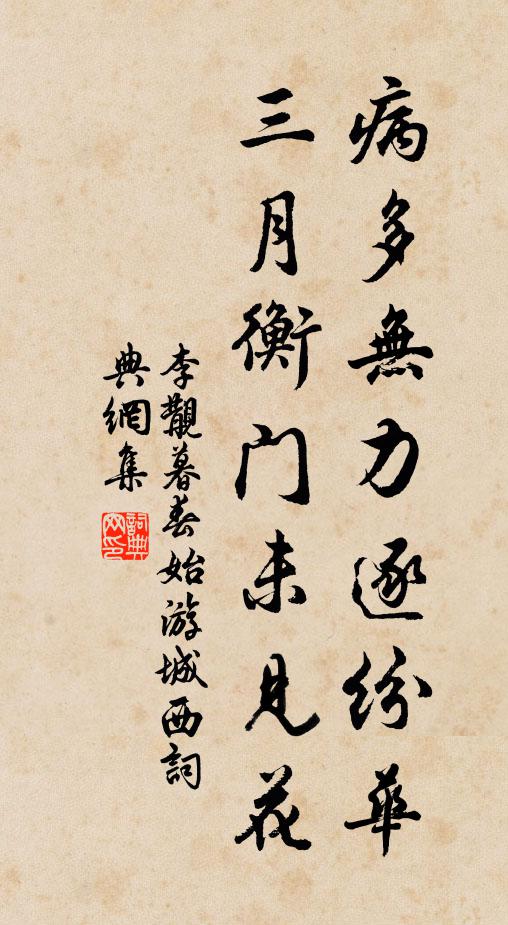 病多無力逐紛華
三月衡门未見花
李覯暮春始游城西詞
典網集
詞典
网印